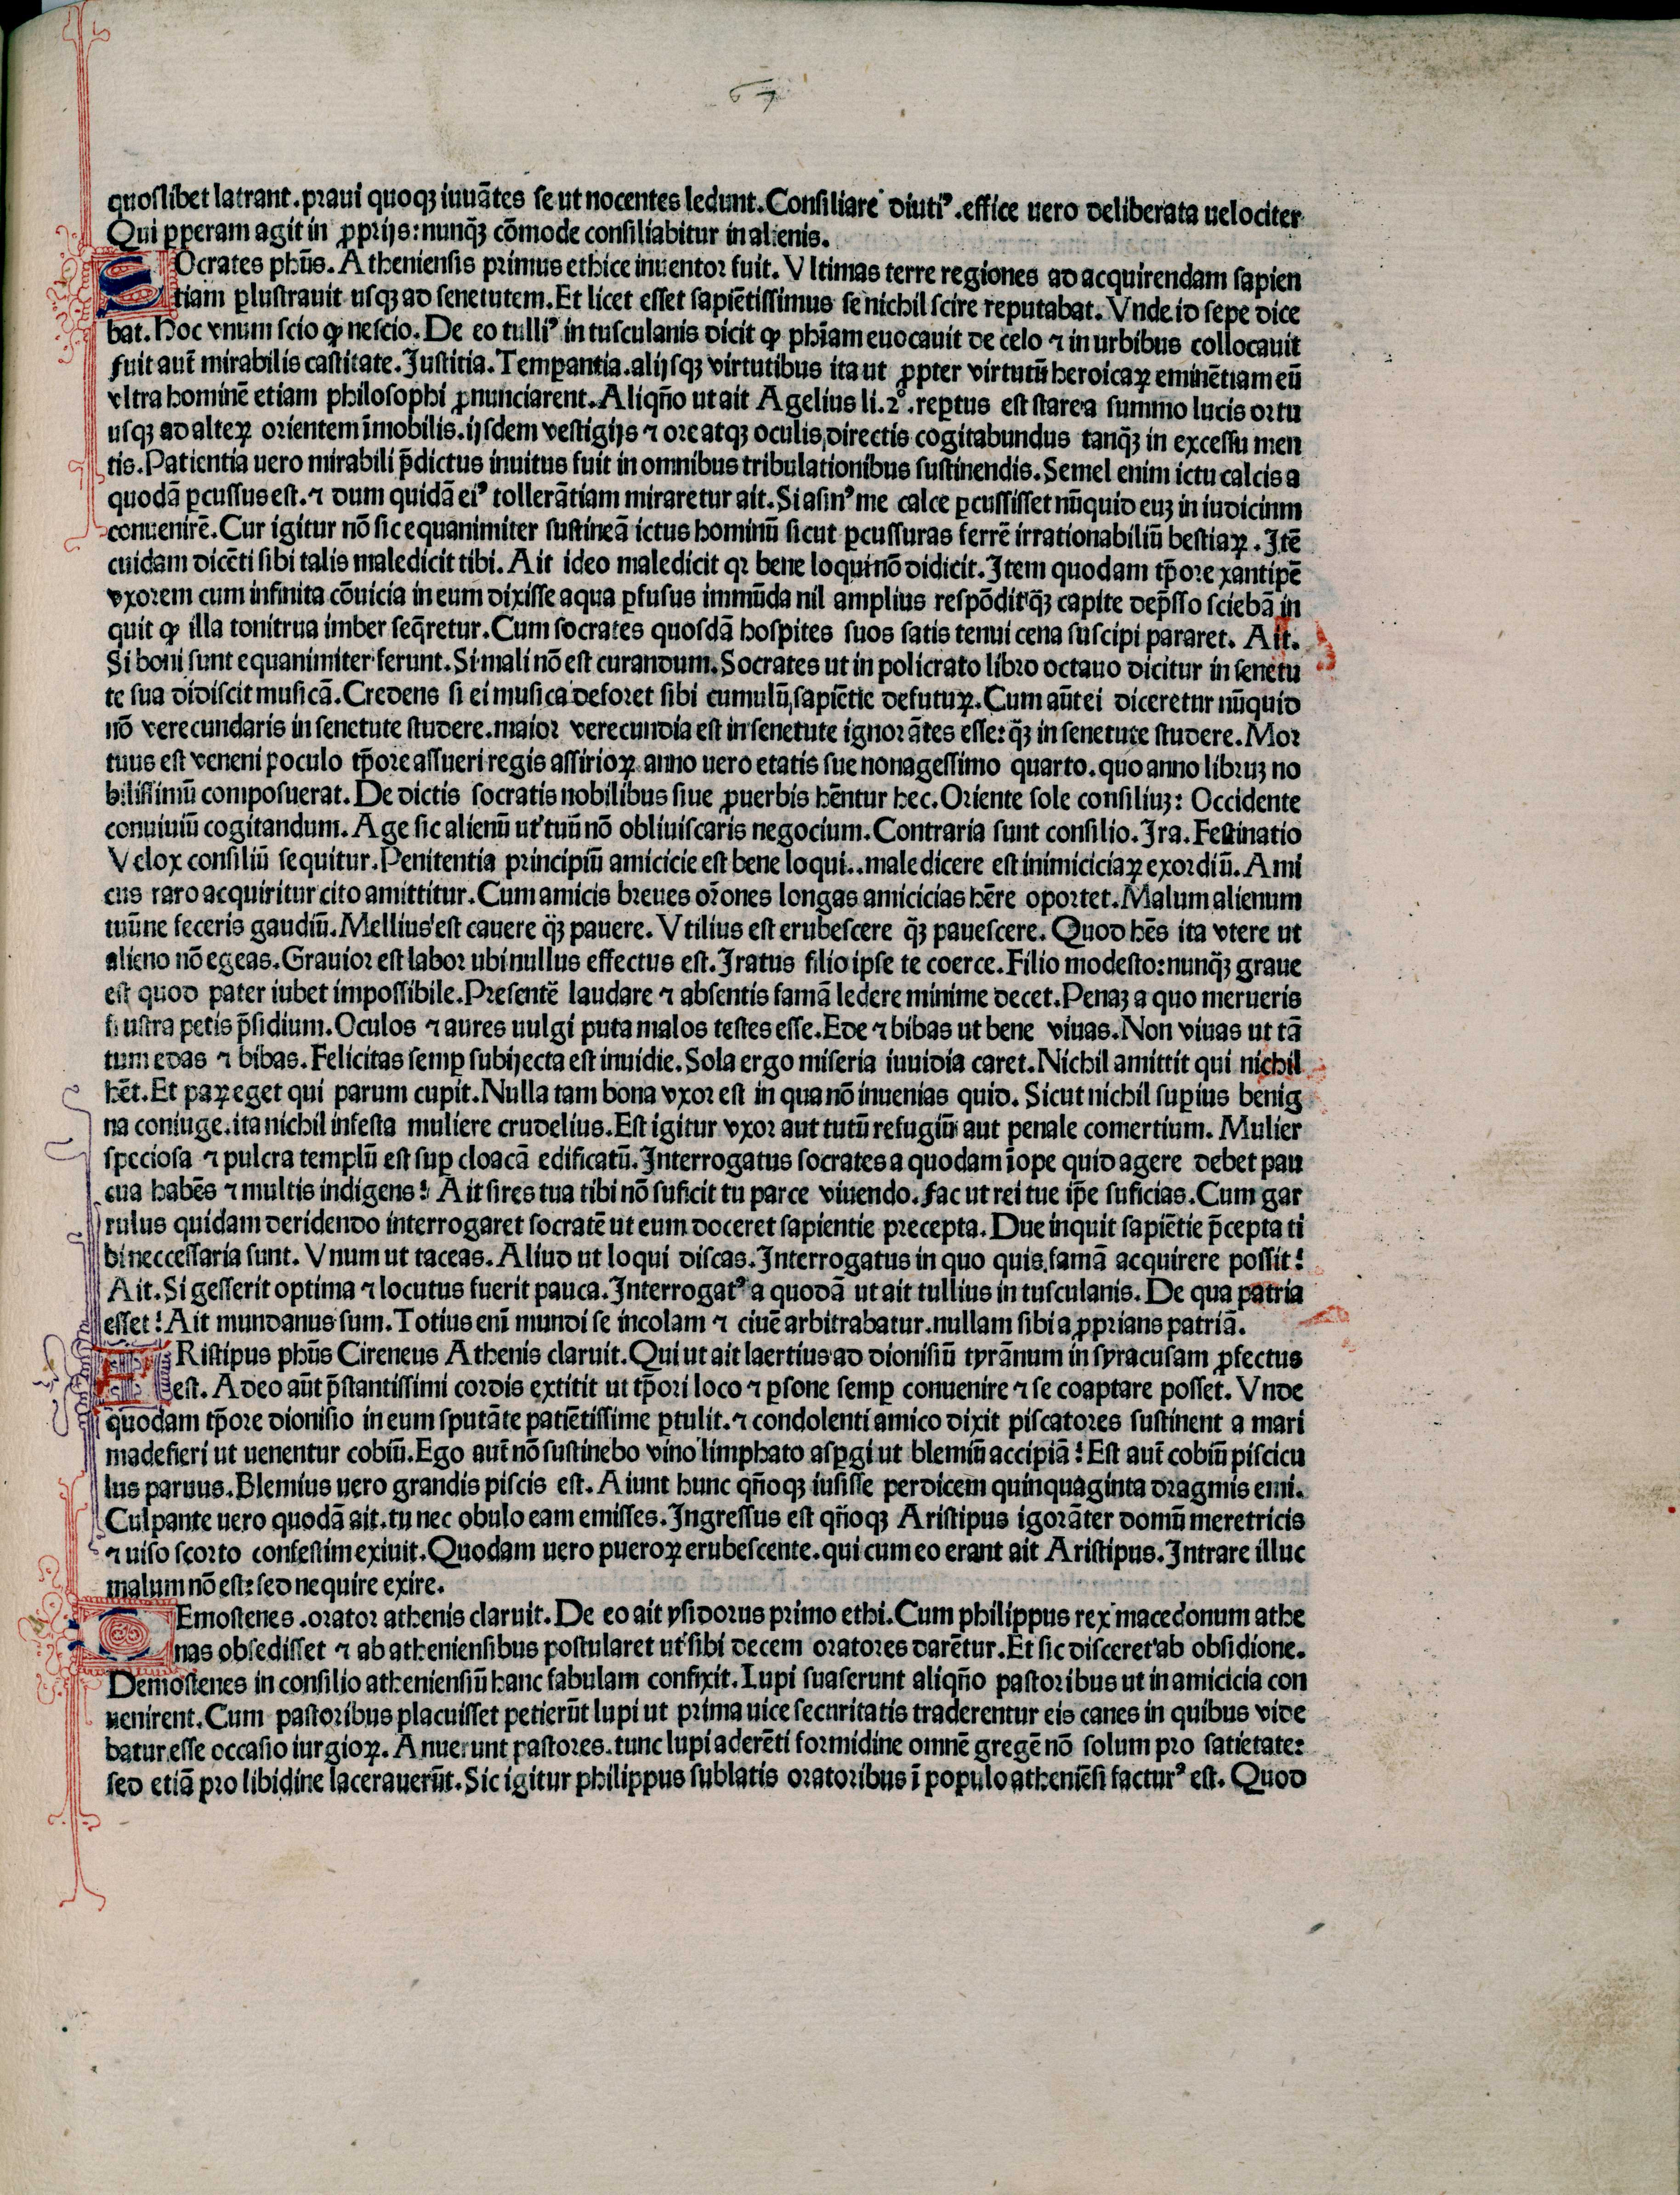 67
quoslibet latrant. praui quoqꝫ iuuātes se ut nocentes ledunt. Consiliare diutiꝰ. effice uero deliberata uelociter
Qui ꝑperam agit in ꝓprijs: nunqꝫ cōmode consiliabitur in alienis.
SOcrates phūs. Atheniensis primus ethice inuentor fuit. Vltimas terre regiones ad acquirendam sapien
tiam ꝑlustrauit usqꝫ ad senetutem. Et licet esset sapiētissimus se nichil scire reputabat. Vnde id sepe dice
bat. Hoc vnum scio ꝙ nescio. De eo tulliꝰ in tusculanis dicit ꝙ phīam euocauit de celo ⁊ in urbibus collocauit
fuit aut̄ mirabilis castitate. Justitia. Temꝑantia. alijsqꝫ virtutibus ita ut ꝓpter virtutū heroicaꝝ eminētiam eū
vltra hominē etiam philosophi ꝓnunciarent. Aliqn̄o ut ait Agelius li. 2°. reꝑtus est stare a summo lucis ortu
usqꝫ ad alteꝝ orientem īmobilis. ijsdem vestigijs ⁊ ore atqꝫ oculis directis cogitabundus tanqꝫ in excessu men
tis. Patientia uero mirabili p̄dictus inuitus fuit in omnibus tribulationibus sustinendis. Semel enim ictu calcis a
quodā ꝑcussus est. ⁊ dum quidā eiꝰ tollerātiam miraretur ait. Si asinꝰ me calce ꝑcussisset nūquid euꝫ in iudicium
conuenirē. Cur igitur nō sic equanimiter sustineā ictus hominū sicut ꝑcussuras ferrē irrationabiliū bestiaꝝ. Jtē
cuidam dicēti sibi talis maledicit tibi. Ait ideo maledicit qr bene loqui nō didicit. Jtem quodam tp̄ore xantipē
vxorem cum infinita cōuicia in eum dixisse aqua ꝑfusus immūda nil amplius respōdit qꝫ capite dep̄sso sciebā in
quit ꝙ illa tonitrua imber seq̄retur. Cum socrates quosdā hospites suos satis tenui cena suscipi pararet. Ait.
Si boni sunt equanimiter ferunt. Si mali nō est curandum. Socrates ut in policrato libro octauo dicitur in senetu
te sua didiscit musicā. Credens si ei musica deforet sibi cumulū sapiētie defutuꝝ. Cum aūt ei diceretur nūquid
nō verecundaris in senetute studere. maior verecundia est in senetute ignorātes esse: qꝫ in senetute studere. Mor
tuus est veneni poculo tp̄ore assueri regis assirioꝝ anno uero etatis sue nonagessimo quarto. quo anno libruꝫ no
bilissimū composuerat. De dictis socratis nobilibus siue ꝓuerbis hēntur hec. Oriente sole consiliuꝫ: Occidente
conuiuiū cogitandum. Age sic alienū ut tuū nō obliuiscaris negocium. Contraria sunt consilio. Jra. Festinatio
Velox consiliū sequitur. Penitentia principiū amicicie est bene loqui.. maledicere est inimiciciaꝝ exordiū. Ami
cus raro acquiritur cito amittitur. Cum amicis breues or̄ones longas amicicias hēre oportet. Malum alienum
tuū ne feceris gaudiū. Mellius est cauere qꝫ pauere. Vtilius est erubescere qꝫ pauescere. Quod hēs ita vtere ut
alieno nō egeas. Grauior est labor ubi nullus effectus est. Jratus filio ipse te coerce. Filio modesto: nunqꝫ graue
est quod pater iubet impossibile. Presentē laudare ⁊ absentis famā ledere minime decet. Penaꝫ a quo merueris
frustra petis p̄sidium. Oculos ⁊ aures uulgi puta malos testes esse. Ede ⁊ bibas ut bene viuas. Non viuas ut tā
tum edas ⁊ bibas. Felicitas semꝑ subijecta est inuidie. Sola ergo miseria iuuidia caret. Nichil amittit qui nichil
hēt. Et paꝝ eget qui parum cupit. Nulla tam bona vxor est in qua nō inuenias quid. Sicut nichil suꝑius benig
na coniuge. ita nichil infesta muliere crudelius. Est igitur vxor aut tutū refugiū aut penale comertium. Mulier
speciosa ⁊ pulcra templū est suꝑ cloacā edificatū. Jnterrogatus socrates a quodam īope quid agere debet pau
cua habēs ⁊ multis indigens? Ait si res tua tibi nō suficit tu parce viuendo. fac ut rei tue ip̄e suficias. Cum gar
rulus quidam deridendo interrogaret socratē ut eum doceret sapientie precepta. Due inquit sapiētie p̄cepta ti
bi neccessaria sunt. Vnum ut taceas. Aliud ut loqui discas. Jnterrogatus in quo quis famā acquirere possit?
Ait. Si gesserit optima ⁊ locutus fuerit pauca. Jnterrogatꝰ a quodā ut ait tullius in tusculanis. De qua patria
esset? Ait mundanus sum. Totius enī mundi se incolam ⁊ ciuē arbitrabatur. nullam sibi aꝓprians patriā.
ARistipus phūs Cireneus Athenis claruit. Qui ut ait laertius ad dionisiū tyrānum in syracusam ꝓfectus
est. Adeo aūt p̄stantissimi cordis extitit ut tp̄ori loco ⁊ ꝑsone semꝑ conuenire ⁊ se coaptare posset. Vnde
quodam tp̄ore dionisio in eum sputāte patiētissime ꝑtulit. ⁊ condolenti amico dixit piscatores sustinent a mari
madefieri ut uenentur cobiū. Ego aut̄ nō sustinebo vino limphato asꝑgi ut blemiū accipiā? Est aut̄ cobiū piscicu
lus paruus. Blemius uero grandis piscis est. Aiunt hunc qn̄oqꝫ iusisse perdicem quinquaginta dragmis emi.
Culpante uero quodā ait. tu nec obulo eam emisses. Jngressus est qn̄oqꝫ Aristipus igorāter domū meretricis
⁊ uiso scorto confestim exiuit. Quodam uero pueroꝝ erubescente. qui cum eo erant ait Aristipus. Jntrare illuc
malum nō est: sed nequire exire.
DEmostenes. orator athenis claruit. De eo ait ysidorus primo ethi. Cum philippus rex macedonum athe
nas obsedisset ⁊ ab atheniensibus postularet ut sibi decem oratores darētur. Et sic disceret ab obsidione.
Demostenes in consilio atheniensiū hanc fabulam confixit. Lupi suaserunt aliqn̄o pastoribus ut in amicicia con
uenirent. Cum pastoribus placuisset petierūt lupi ut prima uice securitatis traderentur eis canes in quibus vide
batur esse occasio iurgioꝝ. Anuerunt pastores. tunc lupi aderēti formidine omnē gregē nō solum pro satietate:
sed etiā pro libidine lacerauerūt. Sic igitur philippus sublatis oratoribus ī populo atheniēsi facturꝰ est. Quod